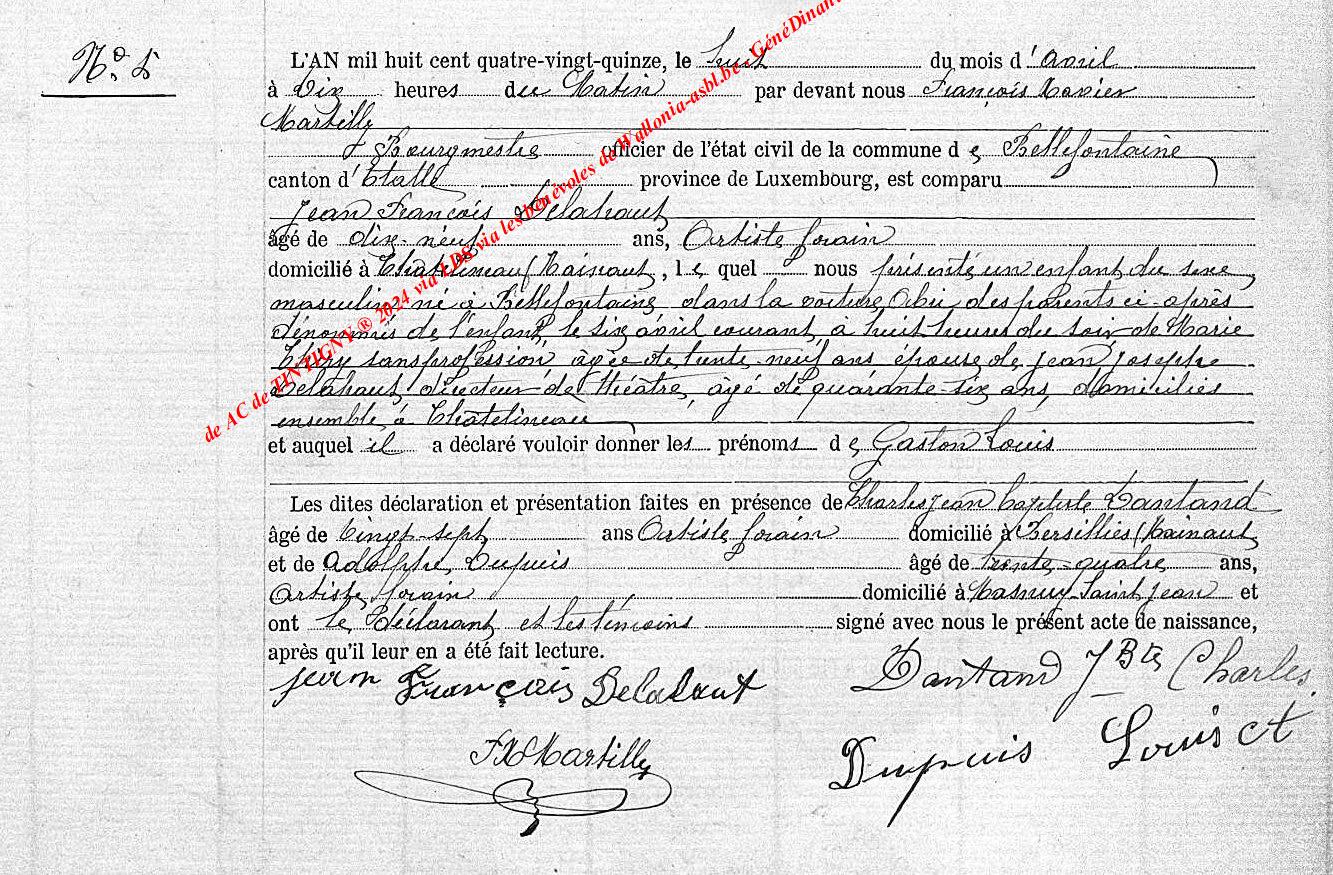 N° 5
L'AN mil huit cent quatre-vingt-quinze, le huit du mois d'avril
à Dix heures du Matin par devant nous François Xavier
Martilly
Bourgmestre officier de l'état civil de la commune de Bellefontaine
canton d'Etalle province de Luxembourg, est comparu
Jean François Delahaut
âgé de dix-neuf ans, Artiste forain
domicilié à Chatelineau (Hainaut, le quel nous présente un enfant du sexe
masculin né à Bellefontaine dans la voiture Abri des parents ci-après
dénommés de l'enfant, le six avril courant, à huit heures du soir de Marie
Thiry sans profession, âgée de trente-neuf ans, épouse de Jean Joseph
Delahaut, directeur de théâtre, âgé de quarante-six ans, domiciliés
ensemble à Chatelineau
et auquel il a déclaré vouloir donner les prénoms de Gaston Louis
Les dites déclaration et présentation faites en présence de Charles Jean Baptiste Dantand
âgé de Vingt-sept ans Artiste forain domicilié à Bersillies (Hainaut
et de Adolphe Dupuis âgé de trente-quatre ans,
Artiste forain domicilié à Masnuy-Saint Jean et
ont le Déclarant et les témoins signé avec nous le présent acte de naissance,
après qu'il leur en a été fait lecture.
Jean François Delahaut
Dantand JBte Charles
FX Martilly
Dupuis Louis ct
de AC de TINTIGNY ® 2024 via LDS via les bénévoles de Wallonia-asbl.be - GénéDinant